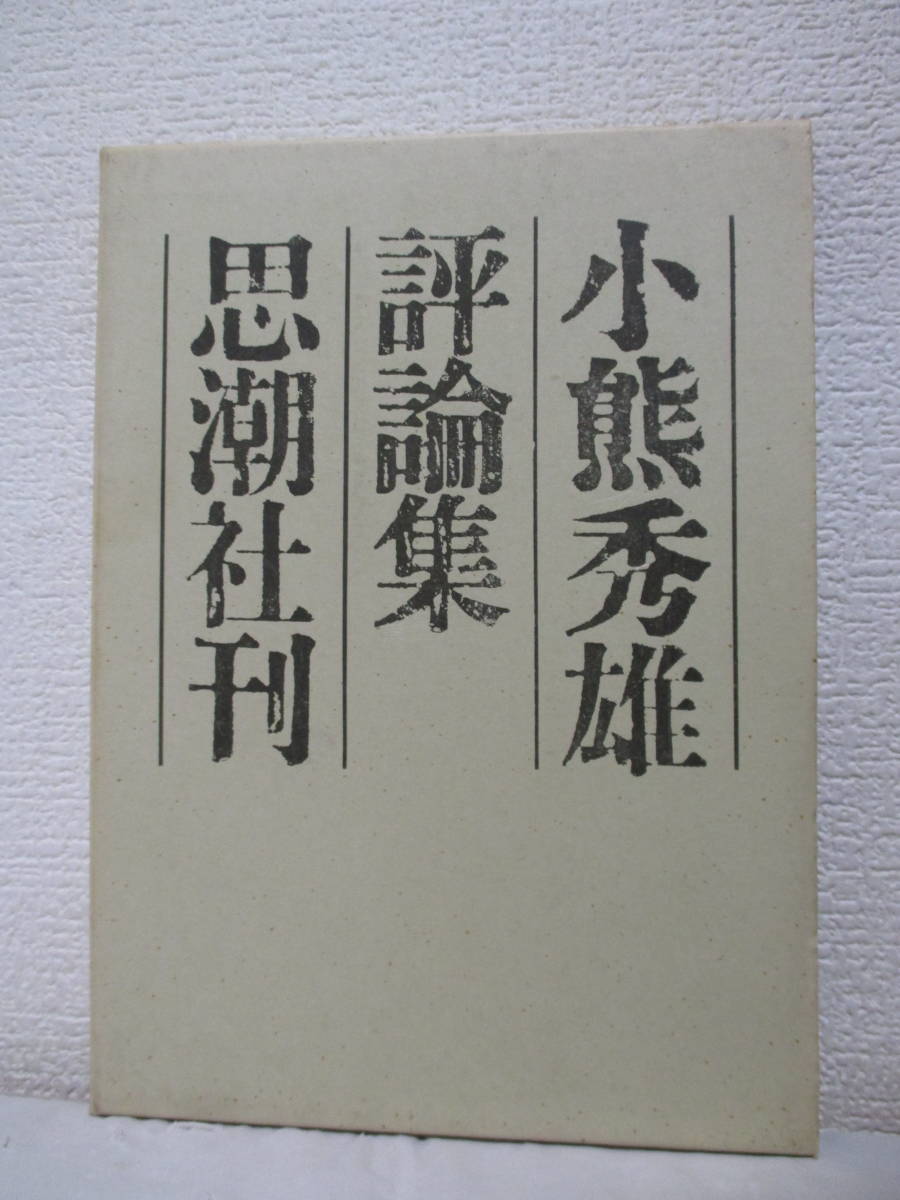 小熊秀雄
評論集
思潮社刊